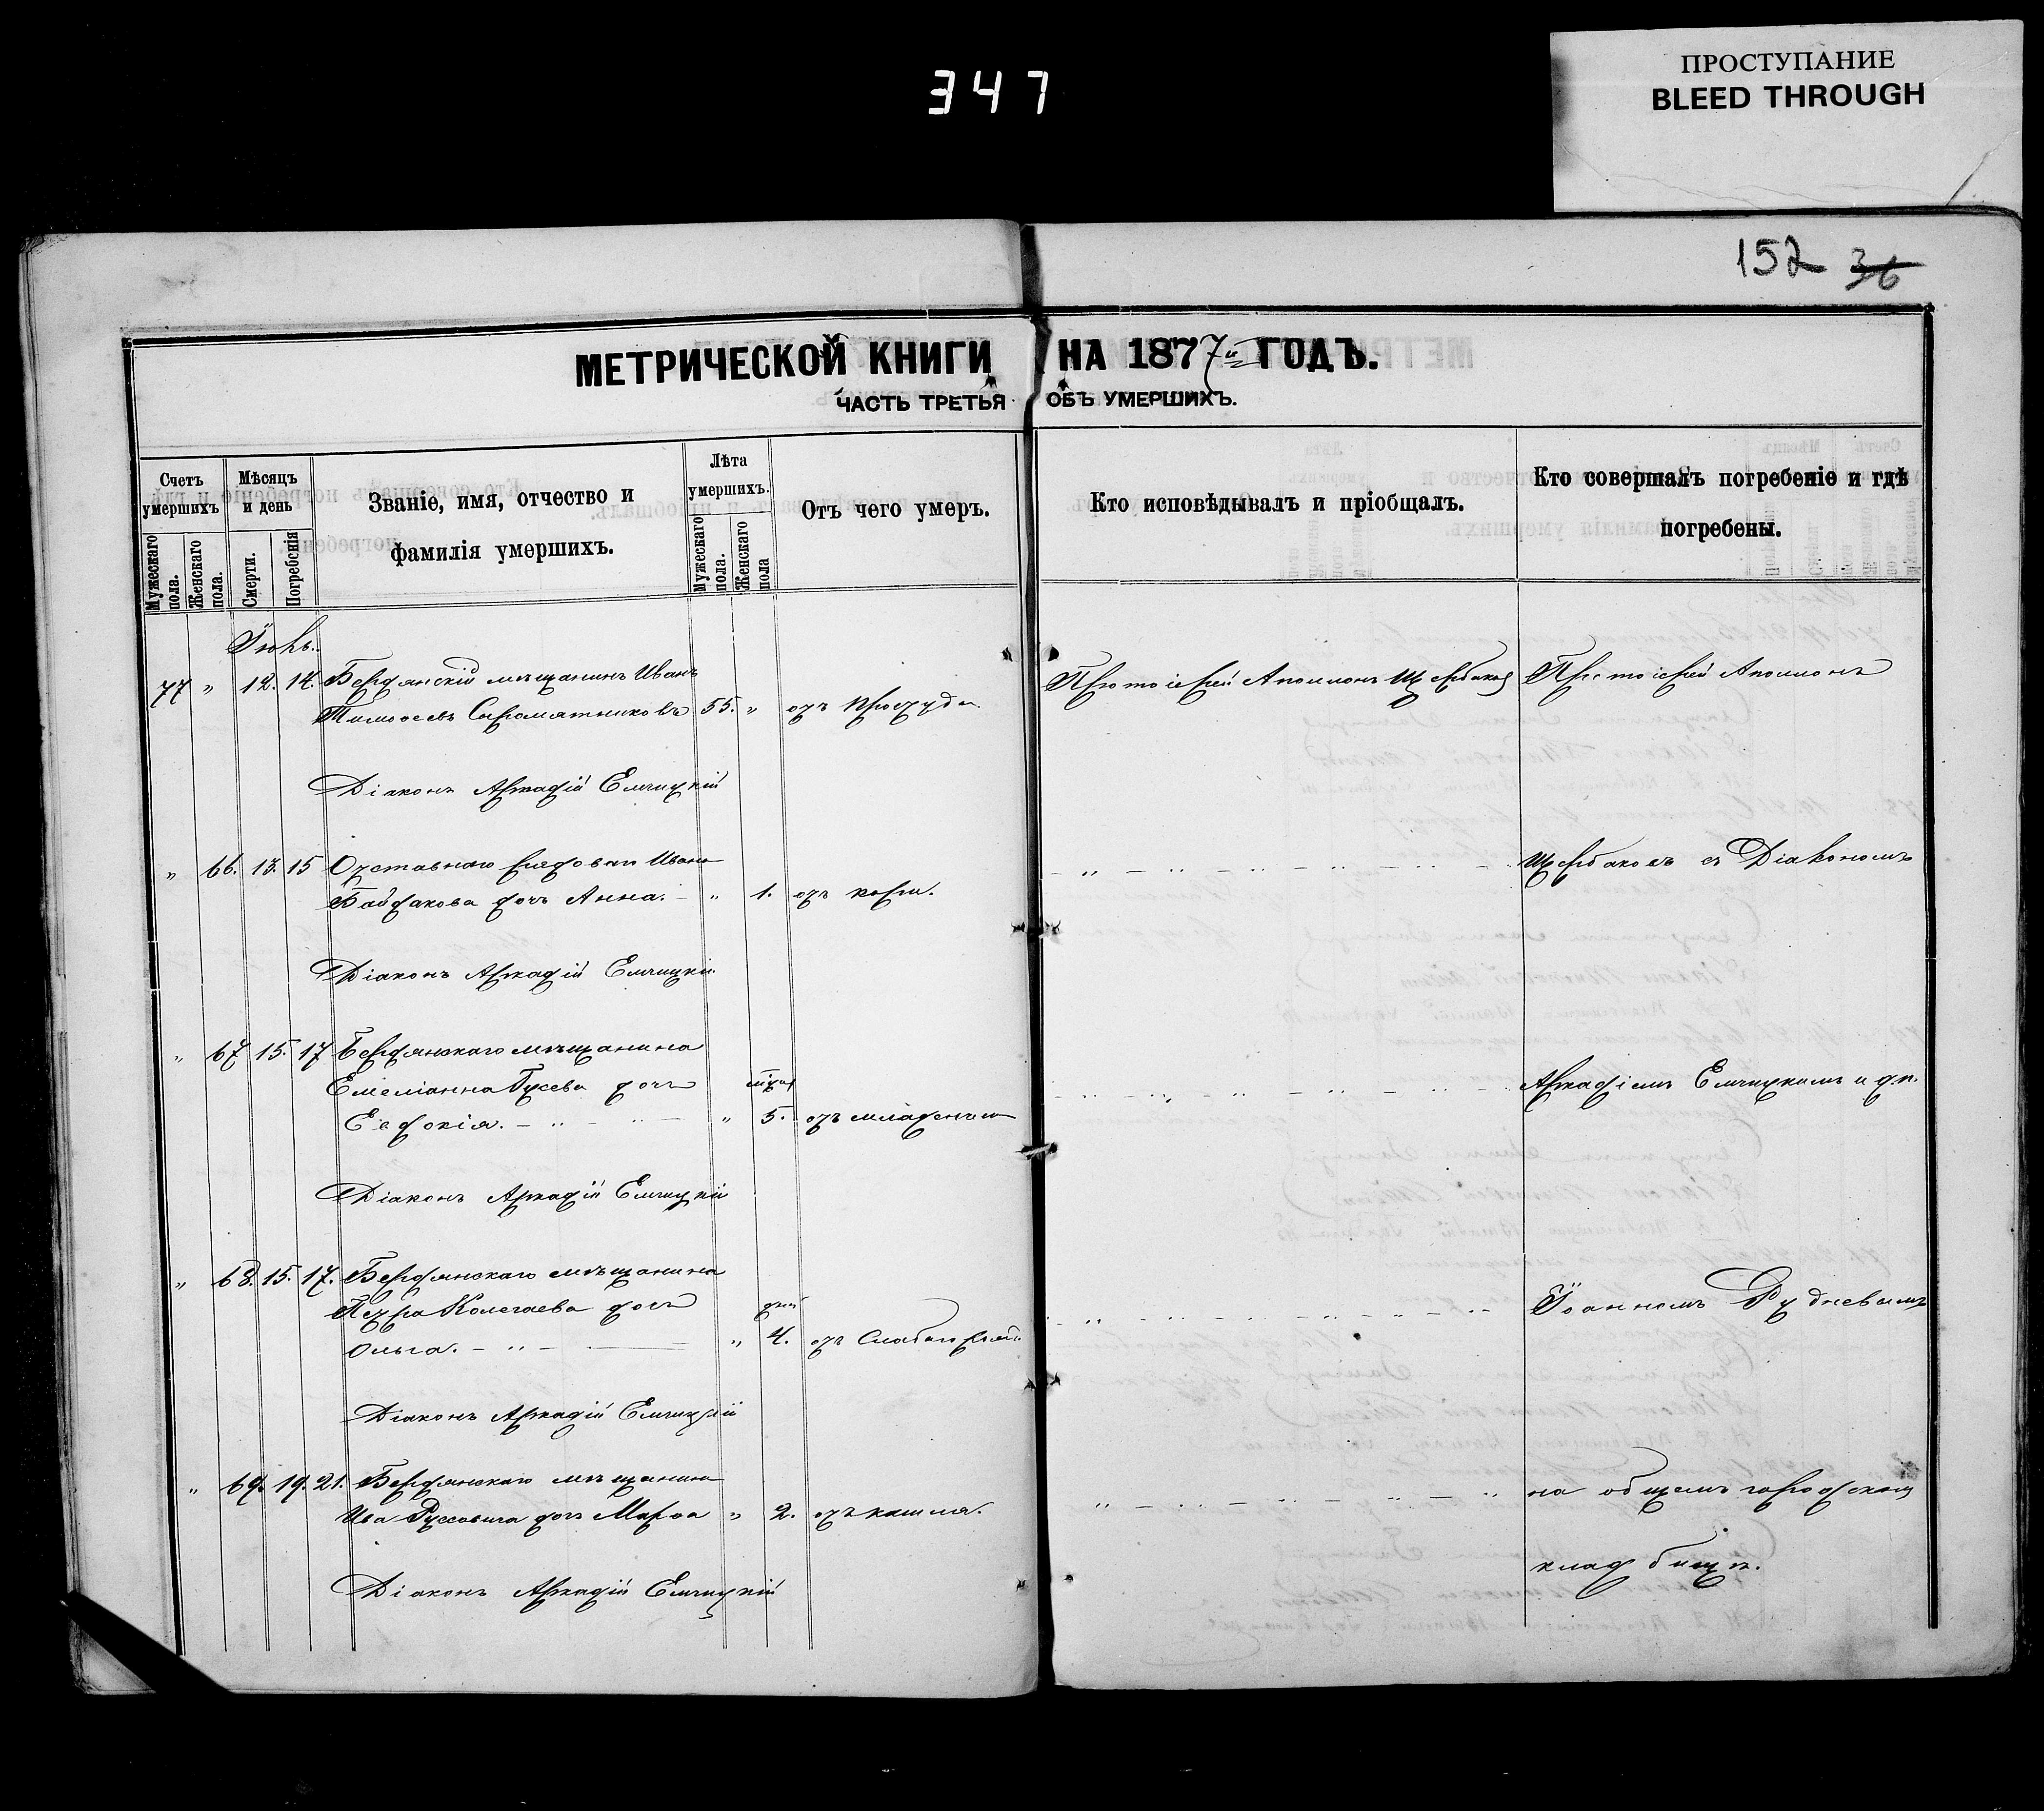 347
ПРОСТУПАНИЕ
BLEED THROUGH
152 36
МЕТРИЧЕСКОЙ КНИГИ НА 1877й ГОДЪ.
ЧАСТЬ ТРЕТЬЯ ОБЪ УМЕРШИХЪ.
Счетъ умершихъ
Мужескаго пола.
Женскаго пола.
Мѣсяцъ и день
Смерти.
Погребенія
Званіе, имя, отчество и
фамилія умершихъ.
Лѣта умершихъ.
Мужескаго пола.
Женскаго пола
Отъ чего умеръ.
Кто исповѣдывалъ и пріобщалъ.
Кто совершалъ погребеніе и гдѣ
погребены.
Іюнь.
77 " 12. 14. Бердянскій мѣщанинъ Иванъ
Тимоѳеевъ Сыромятниковъ 55. " отъ простуды
Протоіерей Аполлонъ Щербаковъ
Протоіерей Аполлонъ
Діаконъ Аркадій Емчицкій
" 66. 13. 15 Отставнаго рядоваго Ивана
Байдакова дочь Анна. - " 1. отъ кори.
Щербаковъ съ Діакономъ
Діаконъ Аркадій Емчицкій
" 67 15. 17 Бердянскаго мѣщанина
Емеліанна Гусева дочь
Евдокія. - " - " - " 5. отъ младенч
Аркадіемъ Емчицкимъ и
Діаконъ Аркадій Емчицкій
" 68. 15. 17. Бердянскаго мѣщанина
Петра Колегаева дочь дней
Ольга. - " - " 4. отъ слабаго
Іоанномъ Рудневымъ
Діаконъ Аркадій Емчицкій
" 69. 19. 21. Бердянскаго мѣщанина
Ива Руссовича дочь Марѳа " 2. отъ кашля.
на общемъ городскомъ
кладбищѣ.
Діаконъ Аркадій Емчицкій